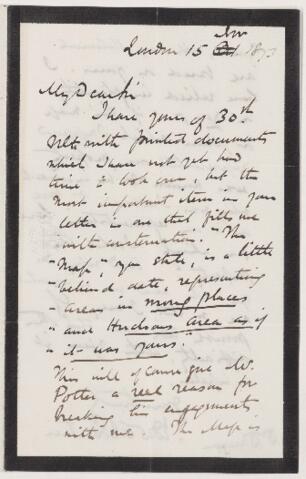 Nov
London 15 Oct 1873
My Dear Sir
I have yours of 30th
Ult. with printed documents
which I have not yet had
time to look over, but the
most important item in your
letter is one that fills me
with consternation. "The
"Map", you state, is a little
"behind date, representing
"areas in wrong places
"and Hudsons area as if
"it was yours."
This will of course give Mr.
Potter a real reason for
breaking his engagements
with me. The Map is